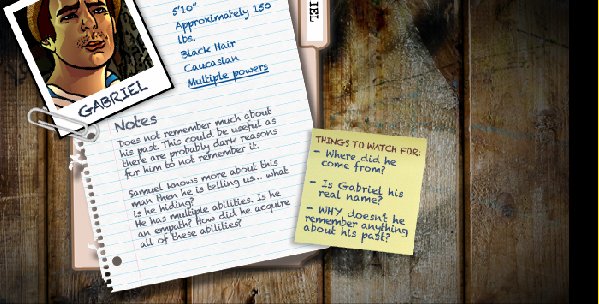 5'10"
Approximately 150
lbs.
Black Hair
Caucasian
Multiple powers
GABRIEL
Notes
Does not remember much about
his past. This could be useful as
there are probably dark reasons
for him to not remember it.
Samuel knows more about this
man then he is telling us... what
is he hiding?
He has multiple abilities. is he
an empath? How did he acquire
all of these abilities?
IEL
THINGS TO WATCH FOR:
- Where did he
come from?
- Is Gabriel his
real name?
- WHY doesnt he
remember anything
about his past?